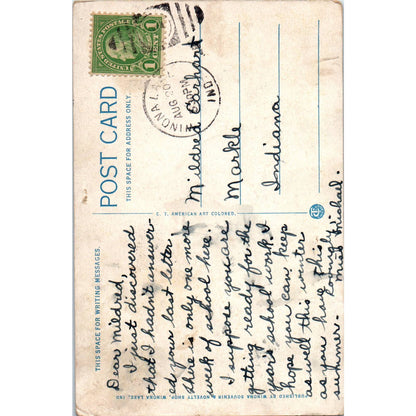 UNITED STATES POSTAGE
1 CENT 1
WINONA LAKE
AUG 20
PM
IND
POST CARD
THIS SPACE FOR ADDRESS ONLY.
Mildred Earhart
Markle
Indiana
C. T. AMERICAN ART COLORED.
THIS SPACE FOR WRITING MESSAGES.
Dear Mildred,
I just discovered
that I hadn't answer-
ed your last letter.
There is only one more
week of school here.
I suppose you are
getting ready for the
year's school work. I
hope you can keep
as well this winter
as you have this
summer. Lovingly,
Miss Michael.
PUBLISHED BY WINONA SOUVENIR & NOVELTY SHOP, WINONA LAKE, IND.